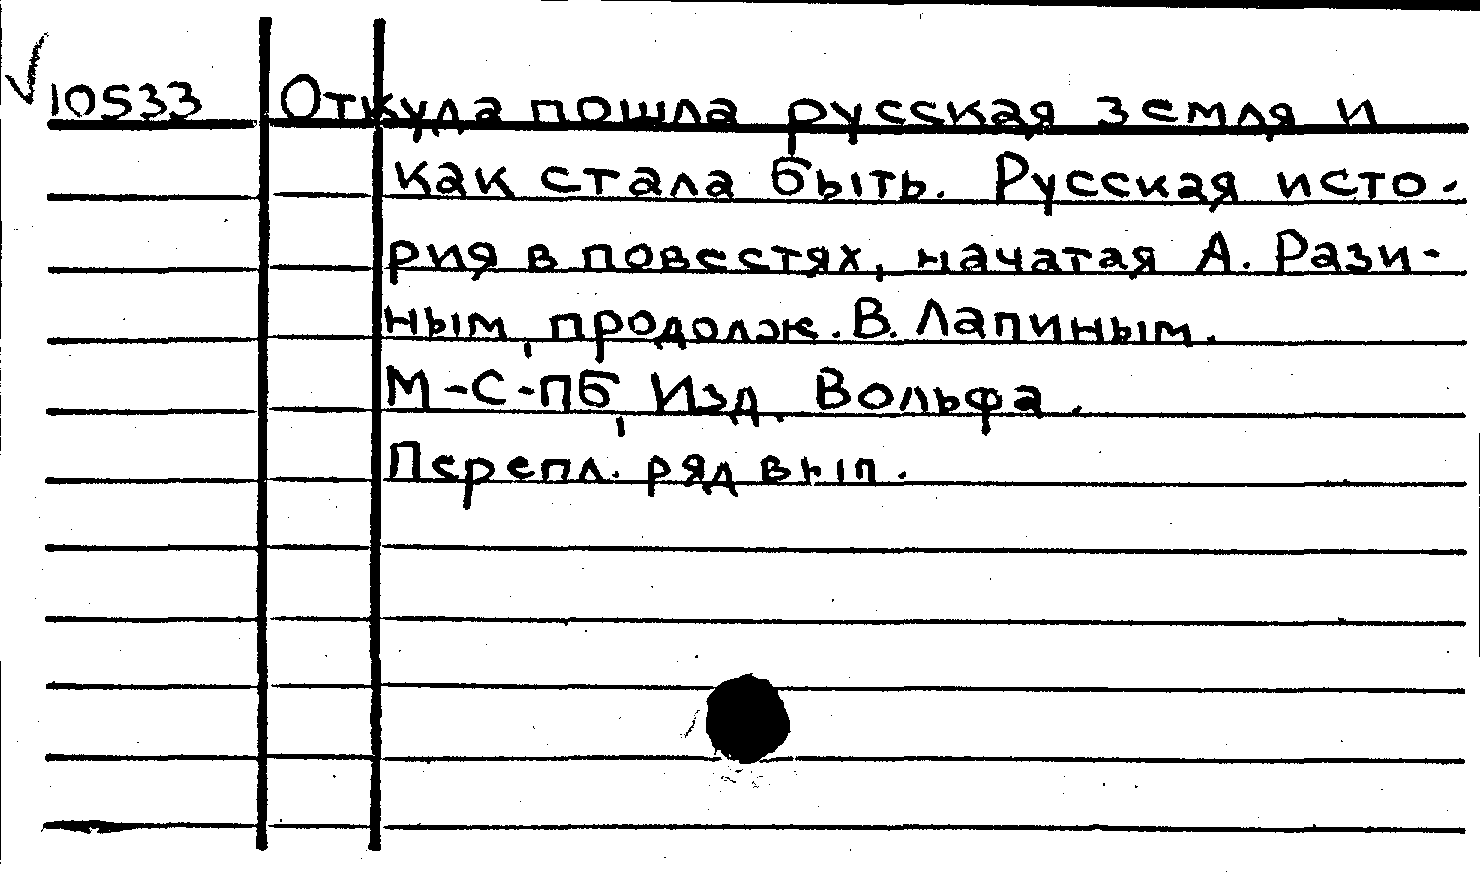 √ 10533 Откуда пошла русская земля и
как стала быть. Русская исто-
рия в повестях, начатая А. Рази-
ным, продолж. В. Лапиным.
М-С-ПБ, Изд. Вольфа.
Перепл. ряд вып.